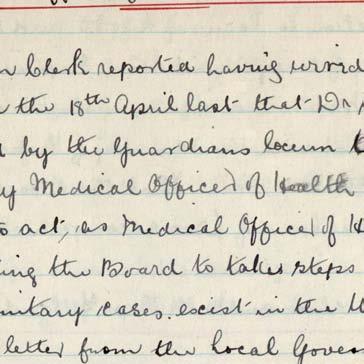 n Clerk reported having wired
n the 18th April last that Dr.
d by the Guardians locum
y Medical Officer of Health
to act, as Medical Officer of H
ting the Board to take steps
nitary cases exist in the U
letter from the Local Gover